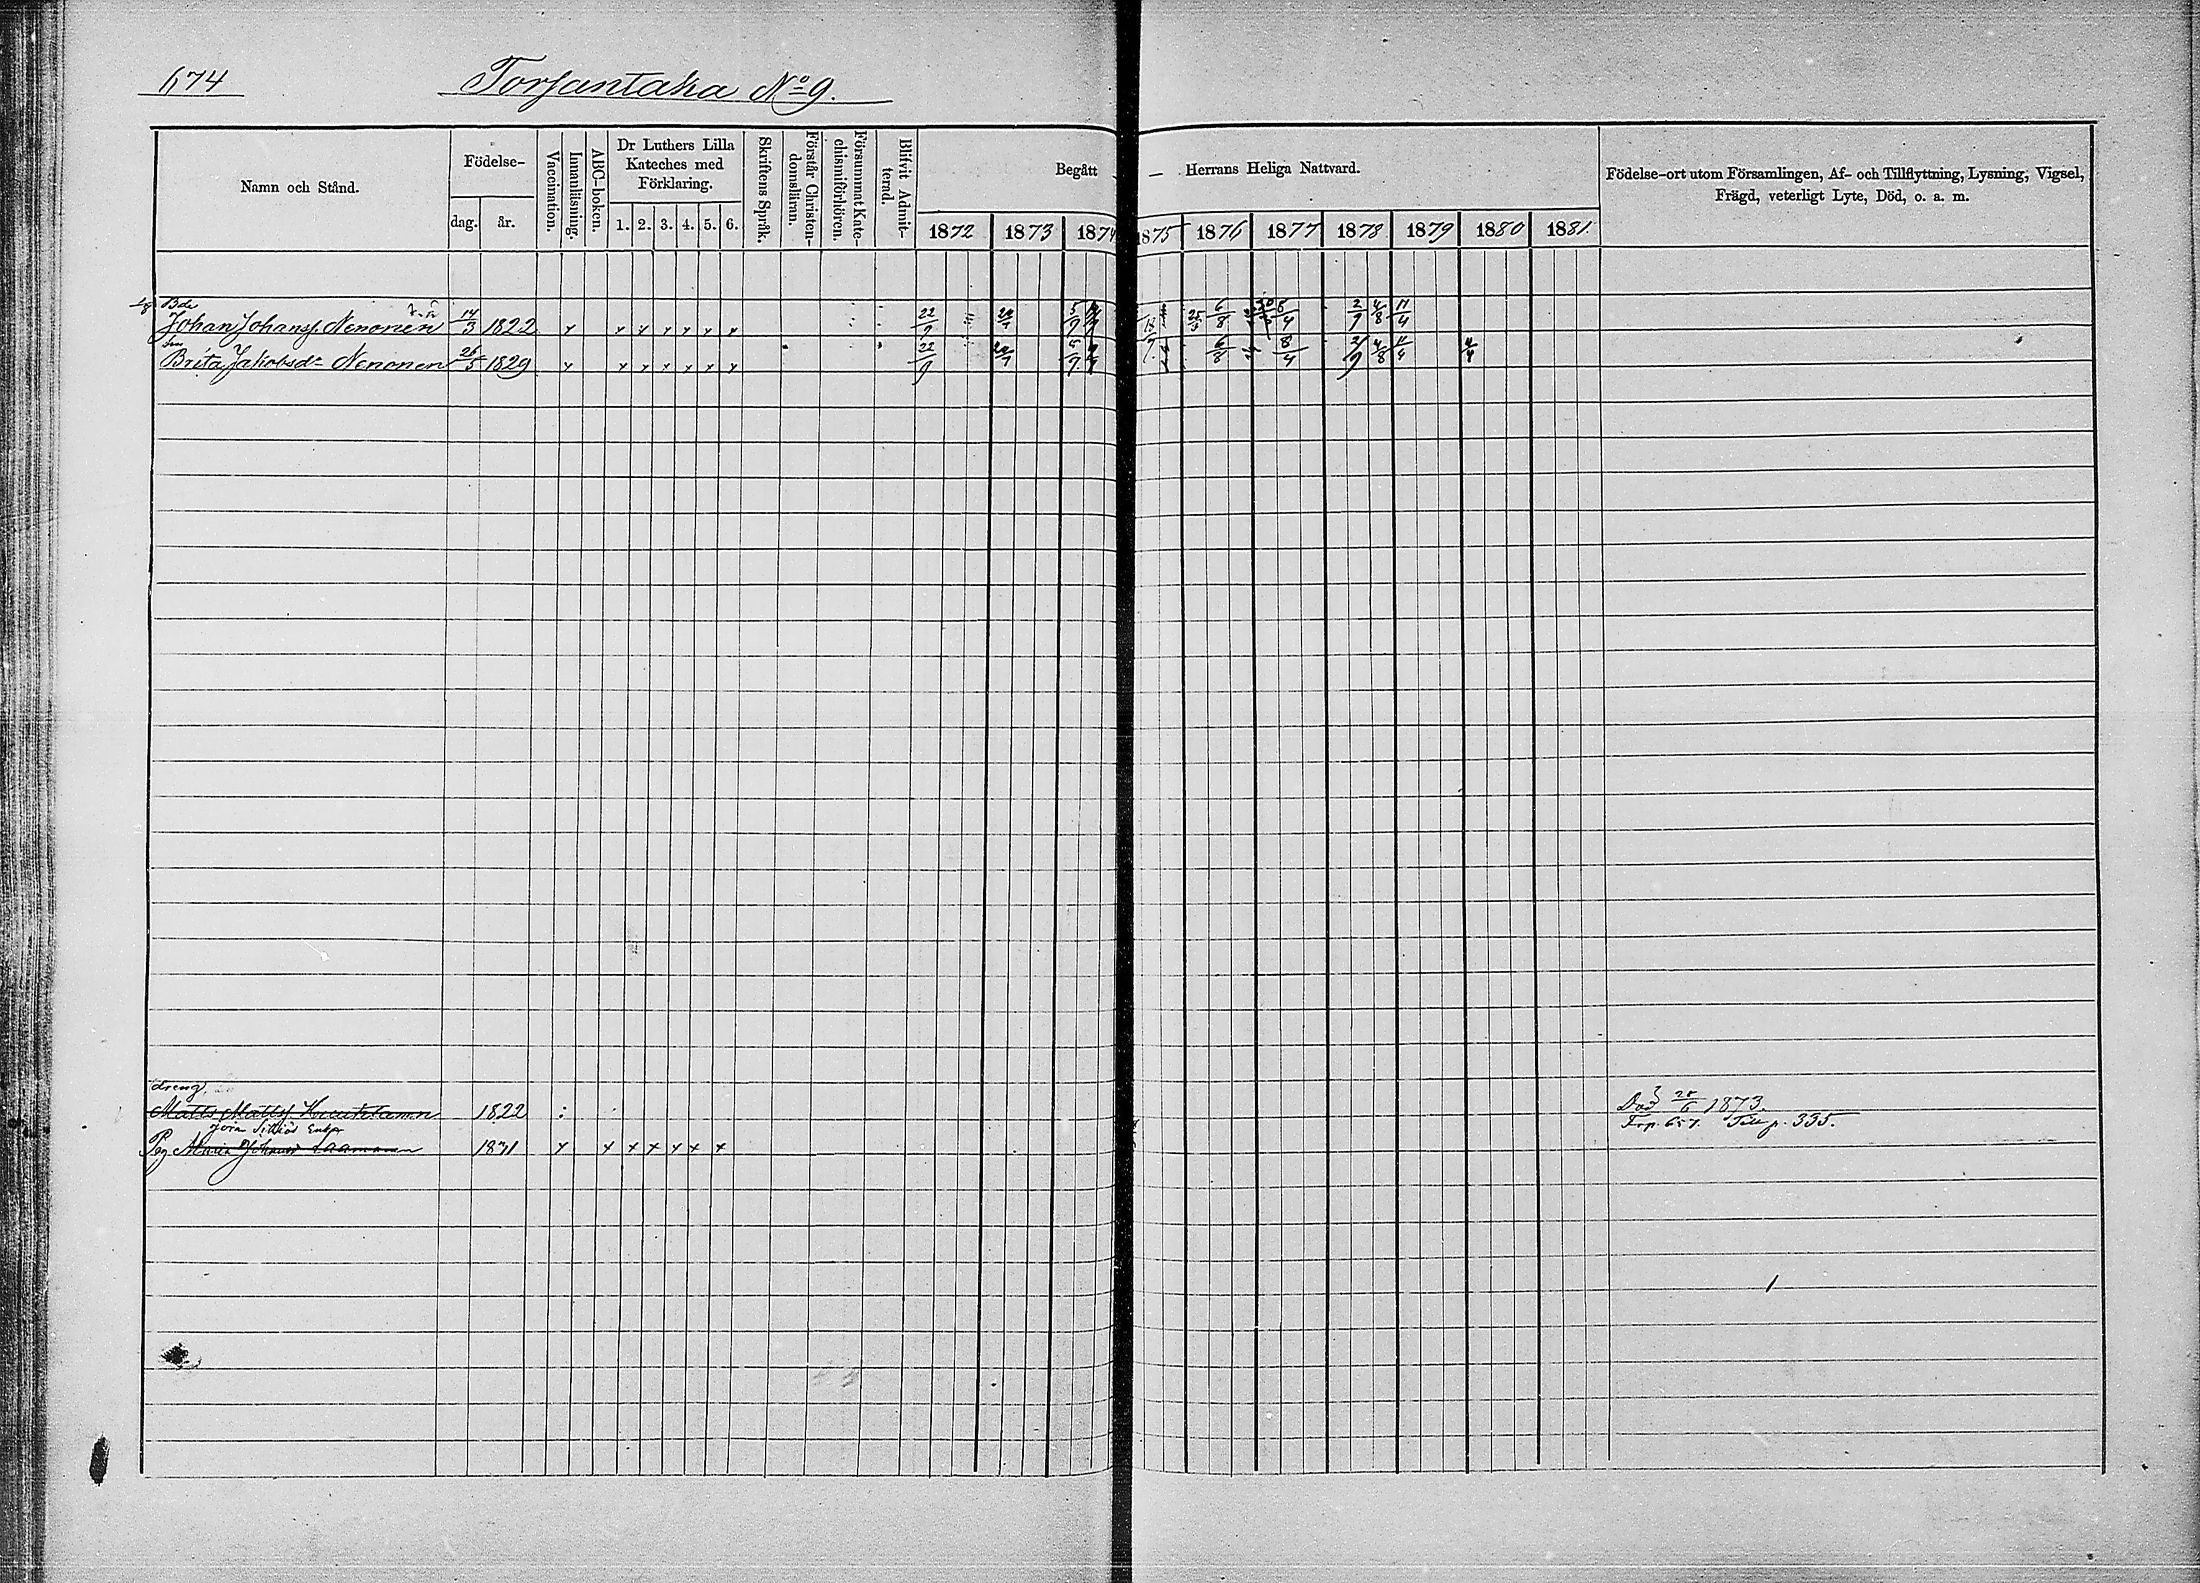 674 Torjantaka No 9.
Namn och Stånd.
Födelse-
dag. år.
Vaccination.
Innanläsning.
ABC-boken.
Dr Luthers Lilla
Kateches med
Förklaring.
1. 2. 3. 4. 5. 6.
Skriftens Språk.
Förstår Christen-
domsläran.
Försummat Kate-
chismiförhören.
Blifvit Admit-
terad.
Begått — Herrans Heliga Nattvard.
1872 1873 1874 1875 1876 1877 1878 1879 1880 1881
Födelse-ort utom Församlingen, Af- och Tillflyttning, Lysning, Vigsel,
Frägd, veterligt Lyte, Död, o. a. m.
Bde
Johan Johanss. Nenonen 14/3 1822 x x x x x x x 22/9 5/9 25/3 6/8 8/4 2/9 4/8 11/4
Brita Jakobsd. Nenonen 26/3 1829 x x x x x x x 22/9 5/9 6/8 8/4 2/9 4/8 11/4 4/4
dreng
Matts Mattss. 1822 Död 28/6 1873.
Pig Maria 1871 x x x x x x x Frp. 657. Till p. 335.